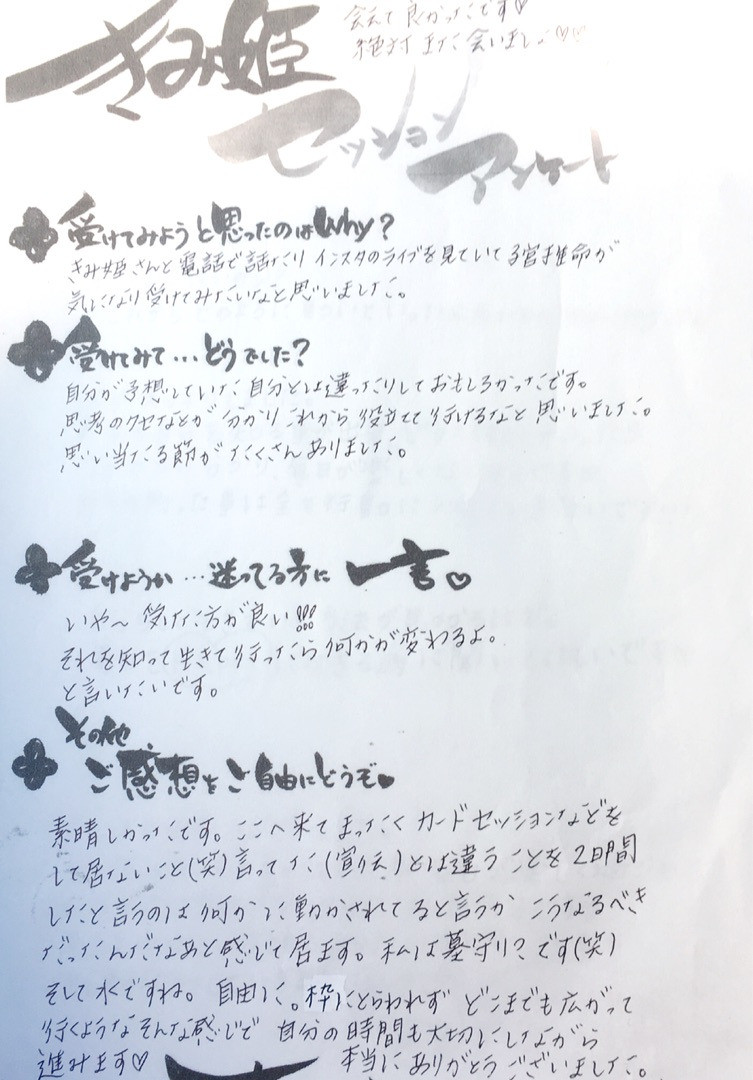 会えて良かったです♡
絶対また会いましょ♡♡
きみ姫
セッション
アンケート
受けてみようと思ったのはWhy?
きみ姫さんと電話で話たり インスタのライブを見ていて子宮推命が
気になり受けてみたいなと思いました。
受けてみて…どうでした?
自分が予想していた自分とは違ったりしておもしろかったです。
思考のクセなどが分かりこれから役立てて行けるなと思いました。
思い当たる節がたくさんありました。
受けようか…迷ってる方に 一言♡
いや〜 受けた方が良い!!!
それを知って生きて行ったら何かが変わるよ。
と言いたいです。
その他
ご感想をご自由にどうぞ♥
素晴しかったです。ここへ来てまったくカードセッションなどを
して居ないこと(笑)言ってた(宣伝)とは違うことを2日間
したと言うのは何かに動かされてると言うか こうなるべき
だったんだなあと感じて居ます。私は墓守り?です(笑)
そして水ですね。自由に。枠にとらわれず どこまでも広がって
行くようなそんな感じで 自分の時間も大切にしながら
進みます♡ 本当にありがとうございました。